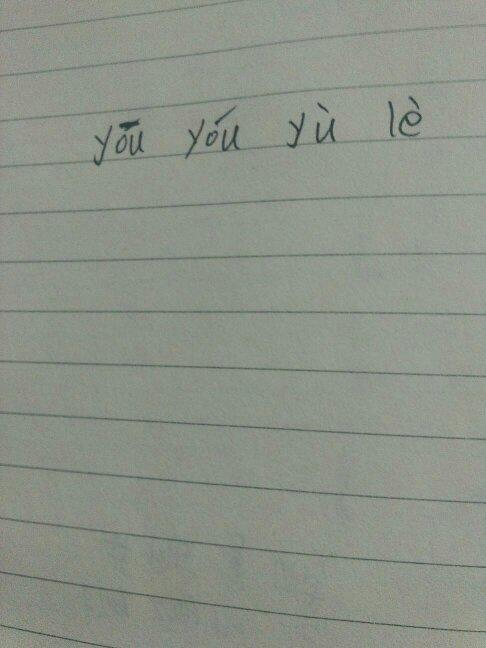 yōu yóu yù lè